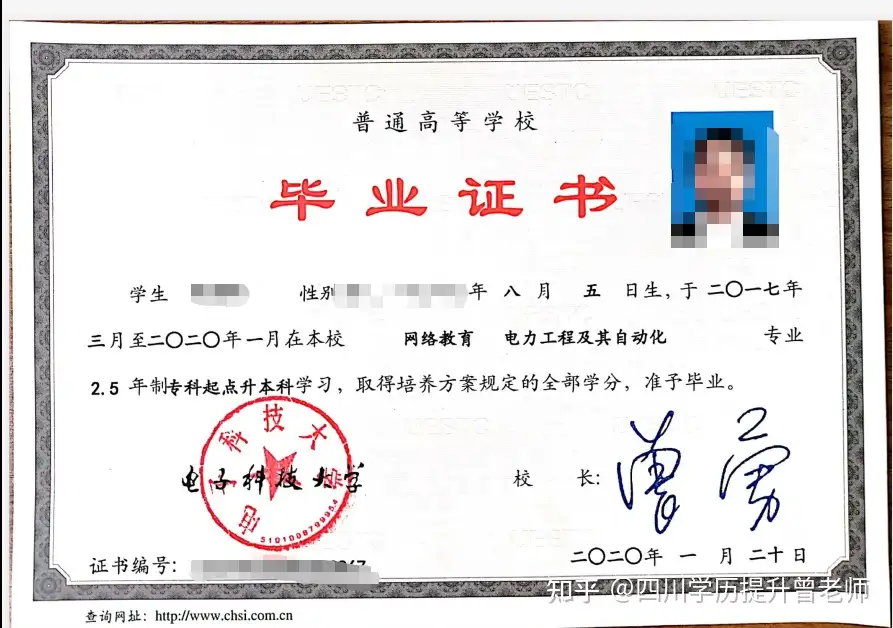 普通高等学校
毕业证书
学生 性别 年 八 月 五 日生，于 二〇一七年
三月至二〇二〇年一月在本校 网络教育 电力工程及其自动化 专业
2.5 年制专科起点升本科学习，取得培养方案规定的全部学分，准予毕业。
电子科技大学
电子科技大学
5101008799954
校 长：
曾勇
证书编号：
二〇二〇年 一 月 二十 日
查询网址：http://www.chsi.com.cn
知乎 @四川学历提升曾老师